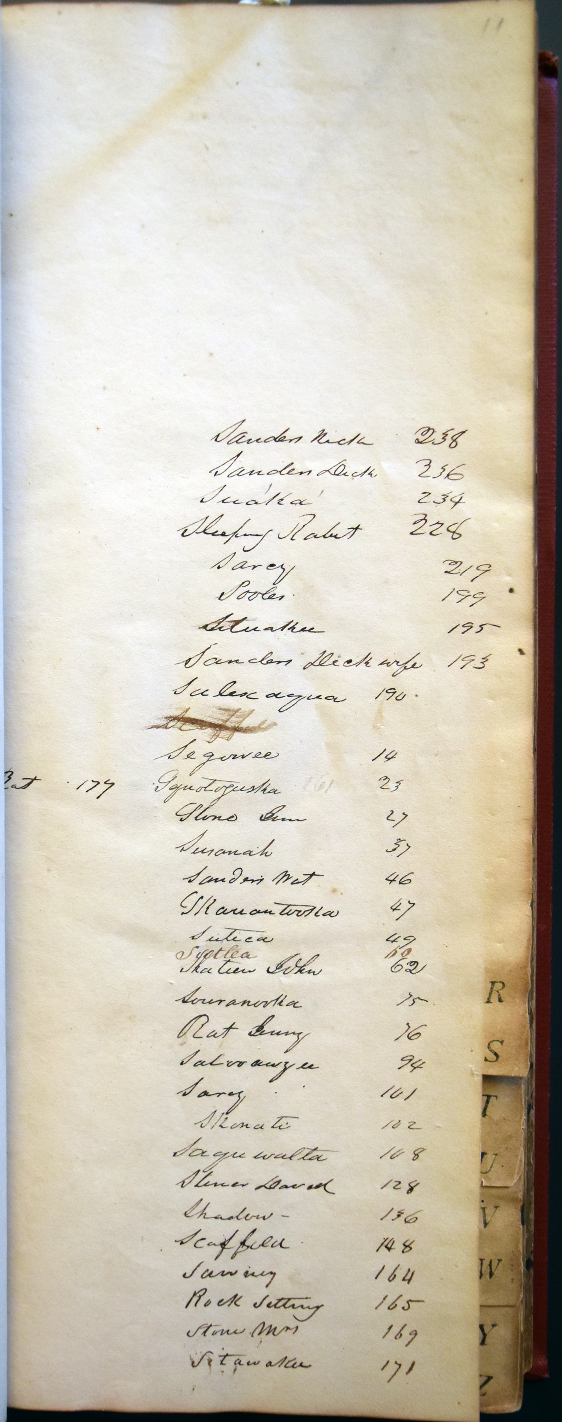 11
Sanders Nick 238
Sanders Dick 236
Suáka 234
Sleeping Rabet 228
Sarcy 219
Pooles 199
Situakee 195
Sanders Dick wife 193
Salexagua 190
Segowee 14
Rat 177 Squotoguska 161 23
Stono 27
Susanah 37
Sanders Wat 46
Skanantooka 47
Sutica 49
60
Skatien John 62
Souranooka 75
Rat 76
94
Sarcy 101
Skonati 102
Saguwalta 108
David 128
Shadow - 136
Scaffeld 148
Sawney 164
Rock Setting 165
Stone Mrs 169
Sitawakee 171
R
S
T
U
V
W
Y
Z